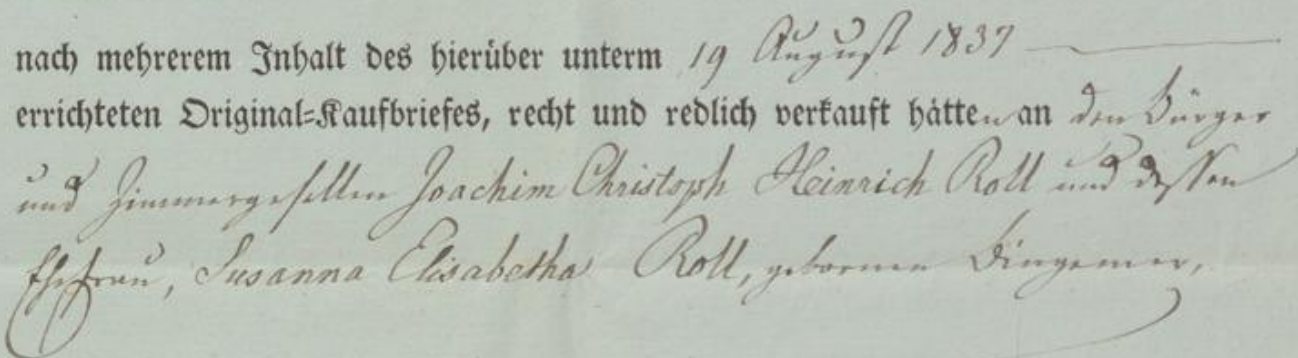 nach mehrerem Inhalt des hierüber unterm 19 August 1837
errichteten Original=Kaufbriefes, recht und redlich verkauft hätten an den Bürger
und Zimmergesellen Joachim Christoph Heinrich Roll und dessen
Ehefrau, Susanna Elisabetha Roll, gebornen Dingemer,